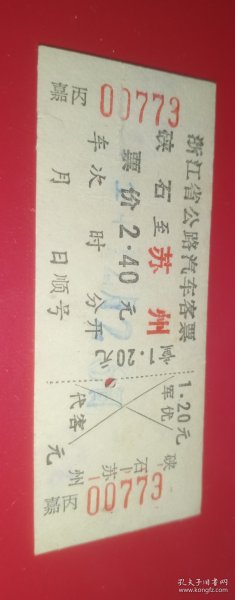 浙江省公路汽车客票
丙嘉 00773
硖石至苏州
票价2.40元
1.20元
车次 时 分开
月 日 顺号
1.20元
军优
代客
元
硖石—苏州
丙嘉 00773
孔夫子旧书网
www.kongfz.com